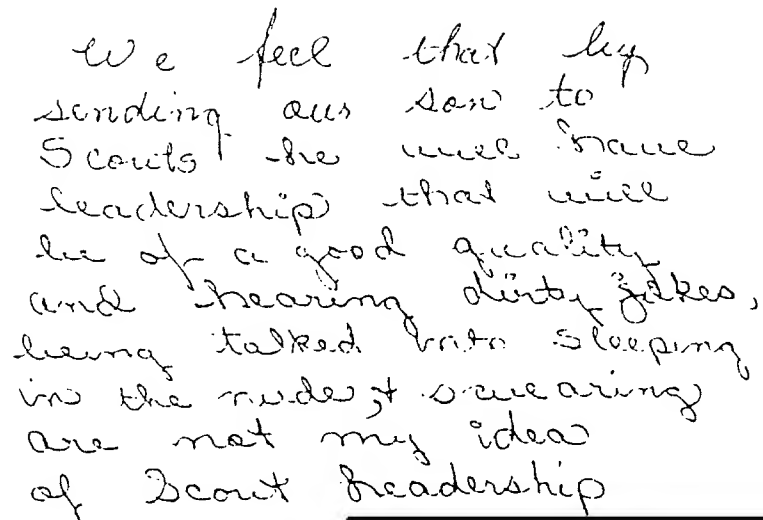 We feel that by
sending our son to
Scouts he will have
leadership that will
be of a good quality
and hearing dirty jokes,
being talked into sleeping
in the nude, & swearing
are not my idea
of Scout leadership